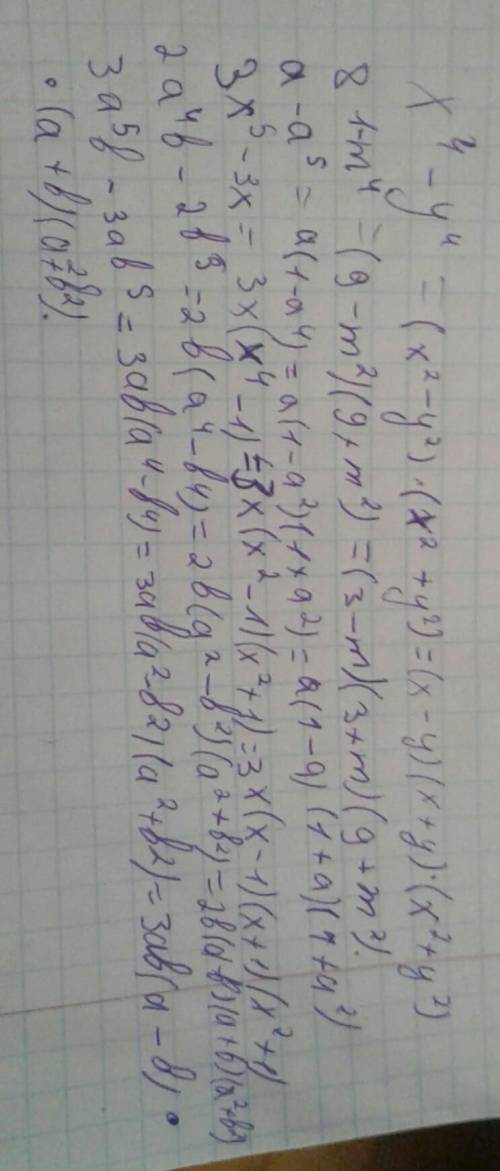 x⁴ - y⁴ = (x² - y²) · (x² + y²) = (x - y)(x + y) · (x² + y²)
81 - m⁴ = (9 - m²)(9 + m²) = (3 - m)(3 + m)(9 + m²).
a - a⁵ = a(1 - a⁴) = a(1 - a²)(1 + a²) = a(1 - a)(1 + a)(1 + a²)
3x⁵ - 3x = 3x(x⁴ - 1) = 3x(x² - 1)(x² + 1) = 3x(x - 1)(x + 1)(x² + 1)
2a⁴b - 2b⁵ = 2b(a⁴ - b⁴) = 2b(a² - b²)(a² + b²) = 2b(a - b)(a + b)(a² + b²)
3a⁵b - 3ab⁵ = 3ab(a⁴ - b⁴) = 3ab(a² - b²)(a² + b²) = 3ab(a - b) ·
· (a + b)(a² + b²).